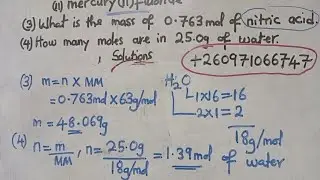 (ii) mercury (II) fluoride
(3) What is the mass of 0.763mol of nitric acid.
(4) How many moles are in 25.0g of water.
Solutions
+260971066747
(3) m = n × MM
= 0.763mol × 63g/mol
m = 48.069g
H2O
1×16=16
2×1 = 2
18g/mol
(4) n = m/MM, n = 25.0g/18g/mol = 1.39mol of water